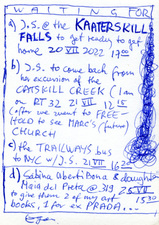 WAITING FOR
a) J.S. @ the KAATERSKILL
FALLS to get ready to get
home 20 VII 2022 17 00
b) J.S. to come back from
his excursion of the
CATSKILL CREEK (I am
on RT 32 21 VII 12 15
(after we went to FREE-
HOLD to see MARC's (future)
CHURCH
c) the TRAILWAYS bus
to NYC w/ J.S. 21 VII 16 20
d) Sabina Oberti Bona & daughter
Maia del Preta @ 319 25 VII
to give them 2 of my art 15 30
books 1 for ex PRADA...